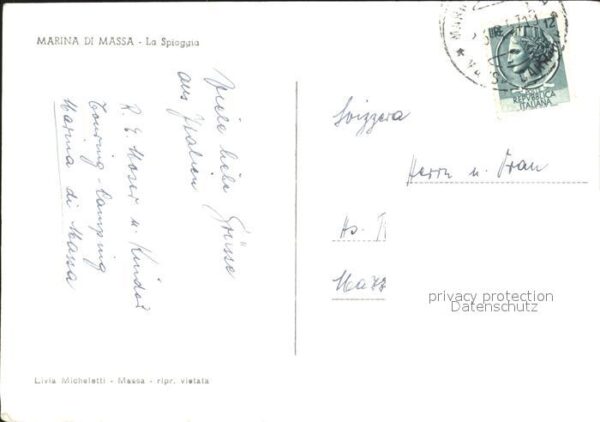 MARINA DI MASSA - La Spiaggia
Viele liebe Grüsse
aus Italien
R. E. Moser u. Kinder
Touring-Camping
Marina di Massa
Livia Micheletti - Massa - ripr. vietata
LIRE 12
REPVBBLICA
ITALIANA
Svizzera
Herrn u. Frau
Hs.
privacy protection
Datenschutz